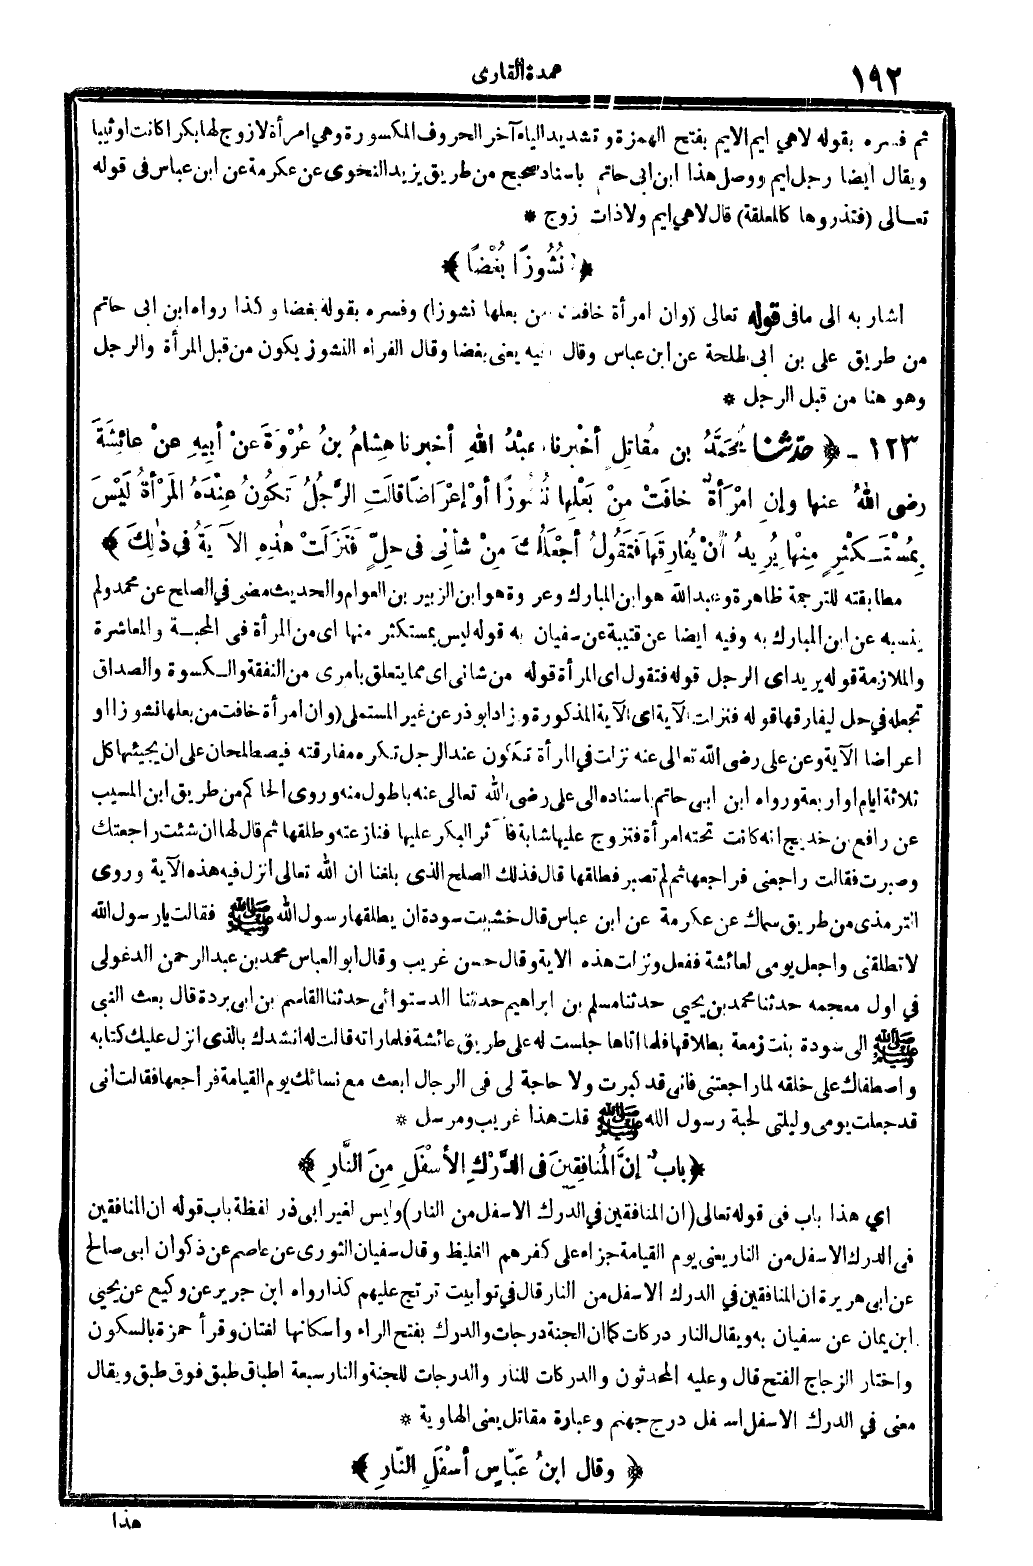 ١٩٢
عمدة القارى
ثم فسره بقوله لاهي ايم الايم بفتح الهمزة وتشديد الياء آخر الحروف المكسورة وهي امرأة لازوج لها بكرا كانت اوثيبا
ويقال ايضا رجل ايم ووصل هذا ابن ابى حاتم باسناد صحيح من طريق يزيد النحوى عن عكرمة عن ابن عباس فى قوله
تعالى (فتذروها كالمعلقة) قال لاهي ايم ولاذات زوج *
﴿ نُشُوزًا بُغْضًا ﴾
اشار به الى مافى قوله تعالى (وان امرأة خافت من بعلها نشوزا) وفسره بقوله بغضا وكذا رواه ابن ابى حاتم
من طريق على بن ابى طلحة عن ابن عباس وقال يعنى بغضا وقال الفراء النشوز يكون من قبل المرأة والرجل
وهو هنا من قبل الرجل *
١٢٣ - ﴿ حدثنا مُحَمَّدُ بن مُقاتِلٍ أخْبرنا عبْدُ اللهِ أخبرنا هِشامُ بنُ عُرْوَةَ عنْ أبِيهِ عنْ عائِشَةَ
رضى اللهُ عنها وإنِ امْرَأةٌ خافَتْ مِنْ بَعْلِها نُشُوزًا أوْ إعْرَاضًا قالَتِ الرَّجُلُ تَكُونُ عِنْدَهُ المَرْأةُ لَيْسَ
بِمُسْتَكْثِرٍ مِنْها يُرِيدُ أنْ يُفارِقَها فَتَقُولُ أجْعَلُكَ مِنْ شأنِى فى حِلٍّ فَنَزَلَتْ هٰذِهِ الآيَةُ فى ذٰلِكَ ﴾
مطابقته للترجمة ظاهرة وعبدالله هو ابن المبارك وعروة هو ابن الزبير بن العوام والحديث مضى في الصلح عن محمد ولم
ينسبه عن ابن المبارك به وفيه ايضا عن قتيبة عن سفيان به قوله ليس بمستكثر منها اى من المرأة فى المحبة والمعاشرة
والملازمة قوله يريد اى الرجل قوله فتقول اى المرأة قوله من شانى اى مما يتعلق بامرى من النفقة والكسوة والصداق
تجعله في حل ليفارقها قوله فنزلت الآية اى الآية المذكورة وزاد ابوذر عن غير المستملى (وان امرأة خافت من بعلها نشوزا او
اعراضا الآية وعن على رضى الله تعالى عنه نزلت في المرأة تكون عند الرجل تكره مفارقته فيصطلحان على ان يجيئها كل
ثلاثة ايام او اربعة ورواه ابن ابى حاتم باسناده الى على رضى الله تعالى عنه باطول منه وروى الحاكم من طريق ابن المسيب
عن رافع بن خديج انه كانت تحته امرأة فتزوج عليها شابة فآثر البكر عليها فنازعته وطلقها ثم قال لها ان شئت راجعتك
وصبرت فقالت راجعنى فراجعها ثم لم تصبر فطلقها قال فذلك الصلح الذى بلغنا ان الله تعالى انزل فيه هذه الآية وروى
الترمذى من طريق سماك عن عكرمة عن ابن عباس قال خشيت سودة ان يطلقها رسول الله ﷺ فقالت يارسول الله
لاتطلقنى واجعل يومى لعائشة ففعل ونزلت هذه الاية وقال حسن غريب وقال ابو العباس محمد بن عبد الرحمن الدغولى
في اول معجمه حدثنا محمد بن يحيى حدثنا مسلم بن ابراهيم حدثنا الدستوائى حدثنا القاسم بن ابى بردة قال بعث النبى
ﷺ الى سودة بنت زمعة بطلاقها فلما اتاها جلست له على طريق عائشة فلما راته قالت له انشدك بالذى انزل عليك كتابه
واصطفاك على خلقه لما راجعتنى فانى قد كبرت ولا حاجة لى فى الرجال ابعث مع نسائك يوم القيامة فراجعها فقالت انى
قد جعلت يومى وليلتى لحبة رسول الله ﷺ قلت هذا غريب ومرسل *
﴿ بابٌ إنَّ المُنافِقِينَ فى الدَّرْكِ الأسْفَلِ مِنَ النَّارِ ﴾
اي هذا باب فى قوله تعالى (ان المنافقين في الدرك الاسفل من النار) وليس لغير ابى ذر لفظة باب قوله ان المنافقين
فى الدرك الاسفل من النار يعنى يوم القيامة جزاء على كفرهم الغليظ وقال سفيان الثورى عن عاصم عن ذكوان ابى صالح
عن ابى هريرة ان المنافقين في الدرك الاسفل من النار قال في توابيت ترتج عليهم كذا رواه ابن جرير عن وكيع عن يحيى
ابن يمان عن سفيان به ويقال النار دركات كما ان الجنة درجات والدرك بفتح الراء واسكانها لغتان وقرأ حمزة بالسكون
واختار الزجاج الفتح قال وعليه المحدثون والدركات للنار والدرجات للجنة والنار سبعة اطباق طبق فوق طبق ويقال
معنى في الدرك الاسفل اسفل درج جهنم وعبارة مقاتل يعنى الهاوية *
﴿ وقال ابنُ عَبّاسٍ أسْفَلِ النَّارِ ﴾
هذا